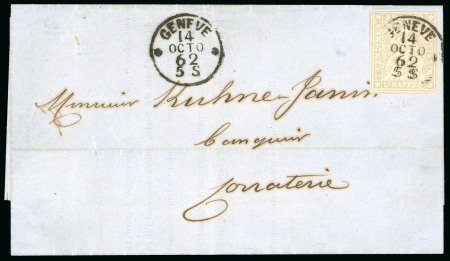 GENEVE
14
OCTO
62
5 S
GENEVE
14
OCTO
62
5 S
Monsieur Kuhne-
banquier
Corraterie